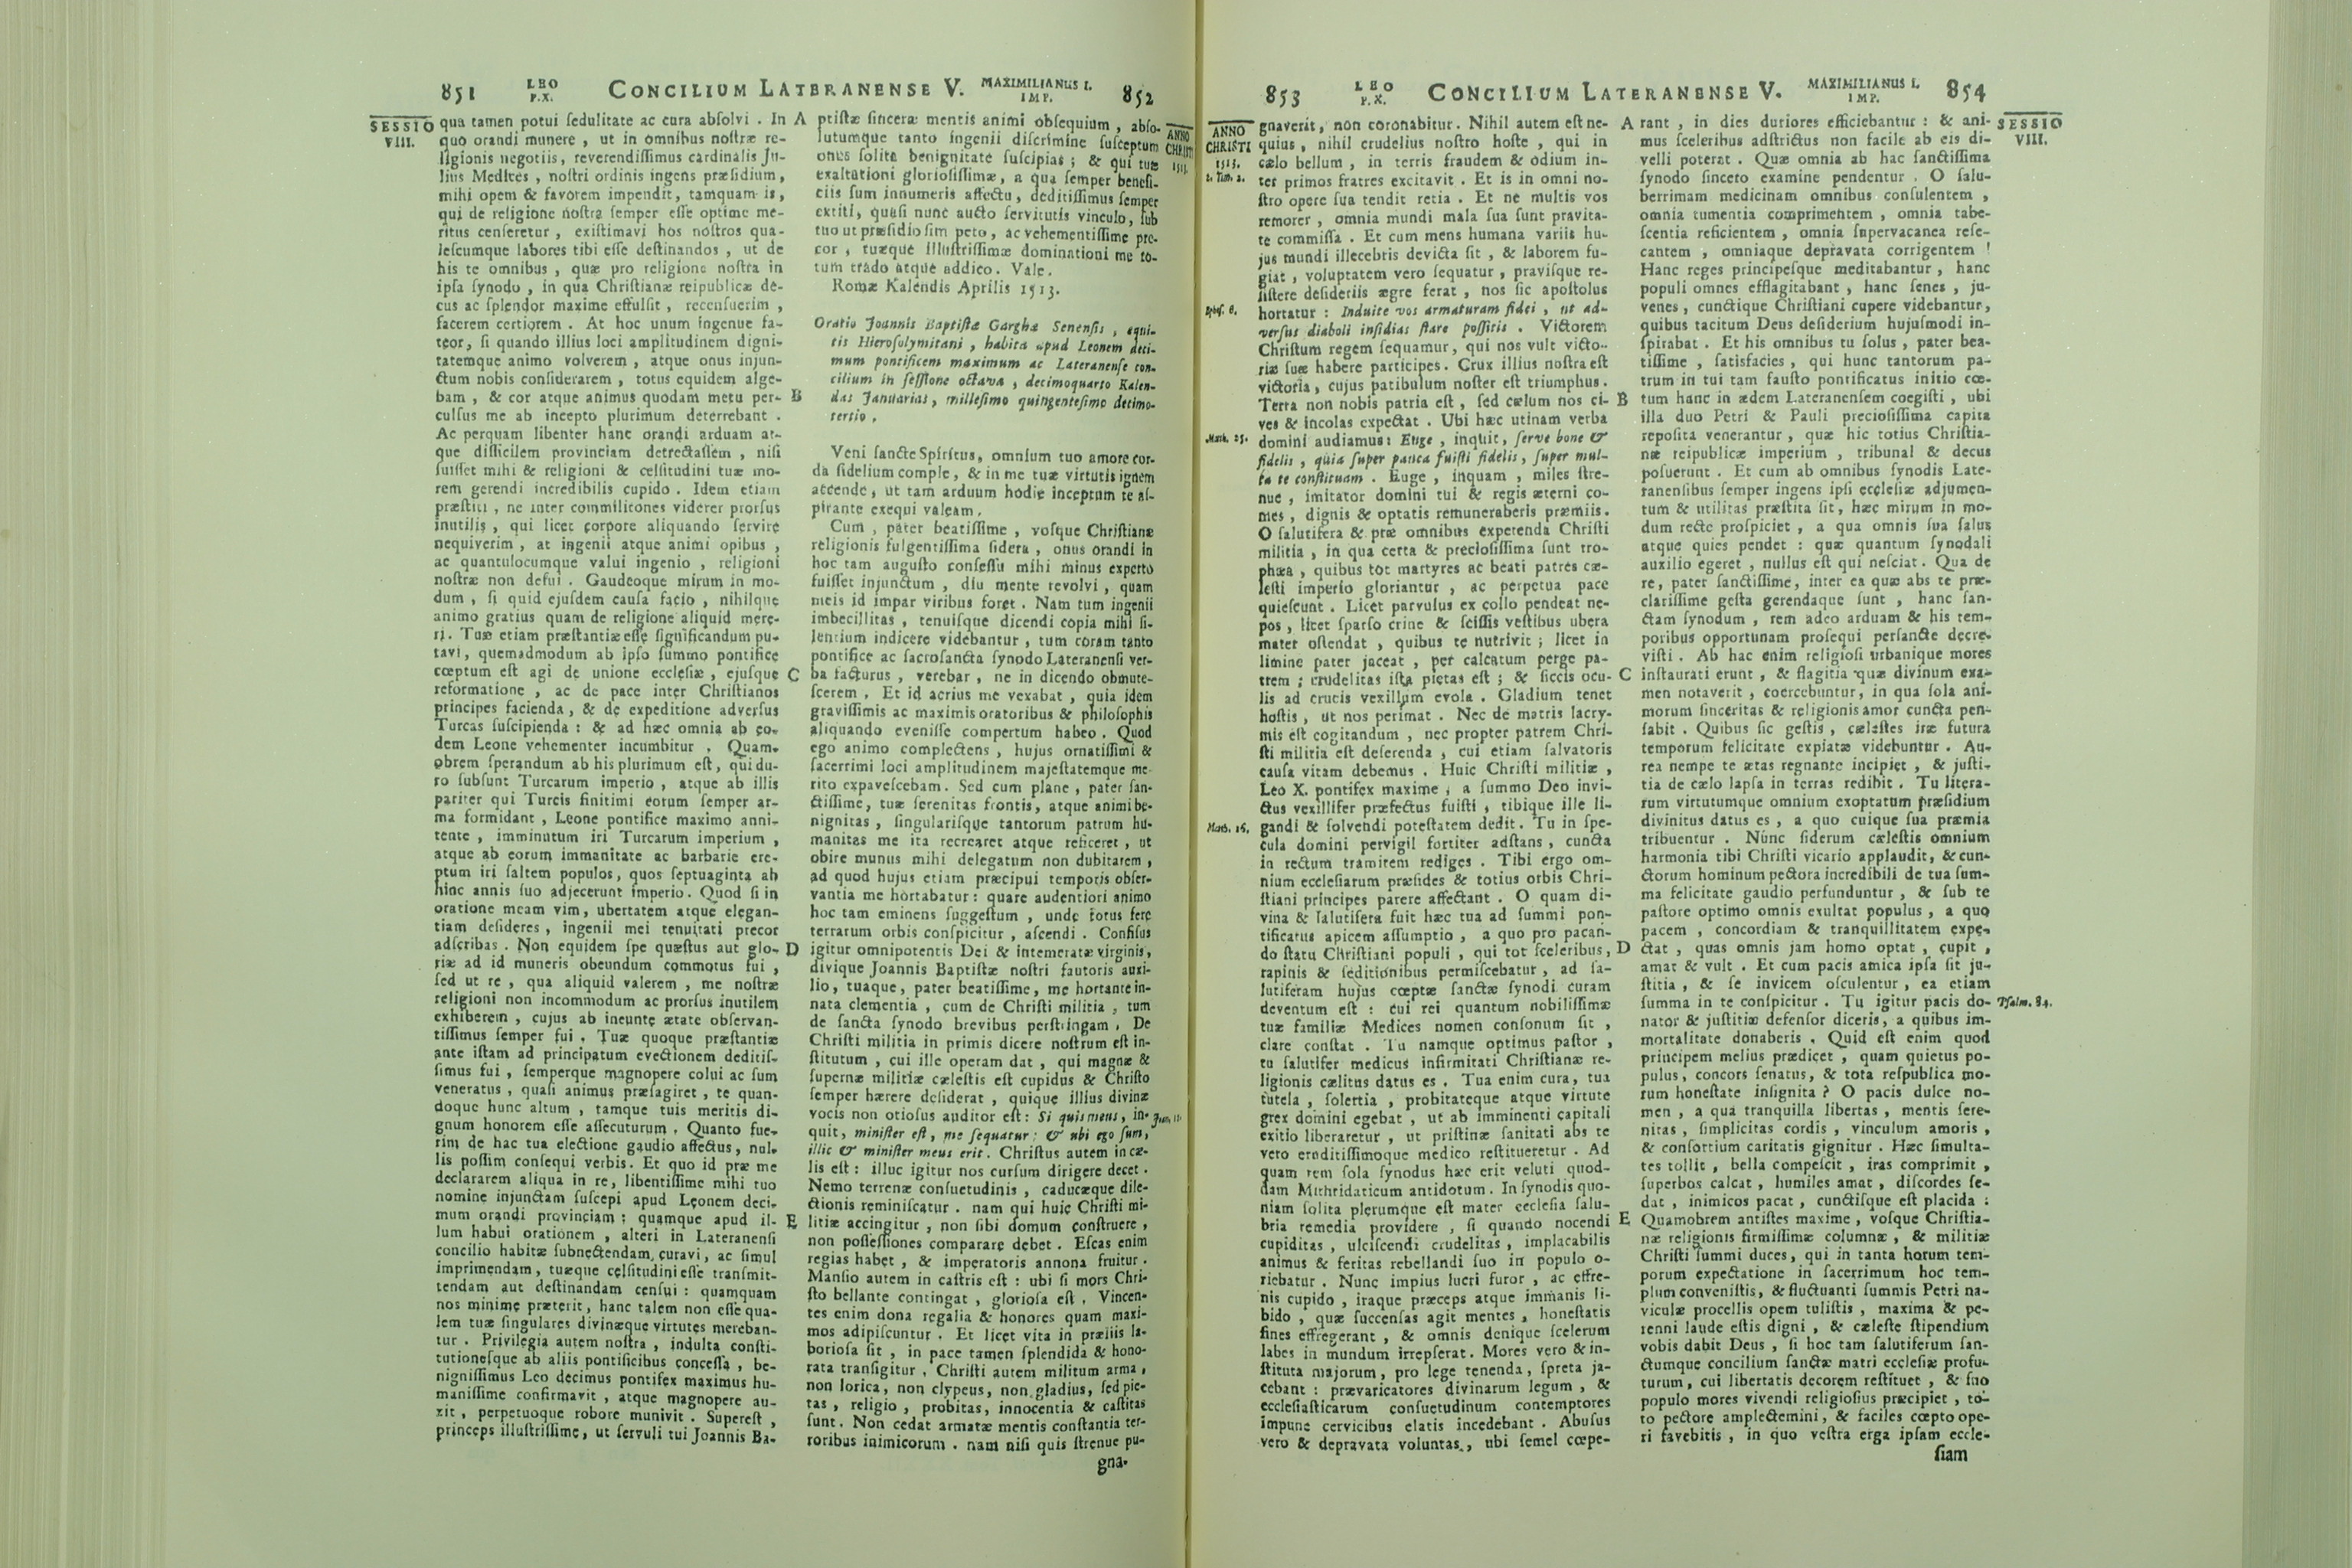 851
LEO
P.X.
CONCILIUM LATERANENSE V.
MAXIMILIANUS I.
IMP.
852
SESSIO
VIII.
qua tamen potui ſedulitate ac cura abſolvi . In
quo orandi munere , ut in omnibus noſtræ re-
ligionis negotiis, reverendiſſimus cardinalis Ju-
lius Medices , noſtri ordinis ingens præſidium,
mihi opem & favorem impendit, tamquam is,
qui de religione noſtra ſemper eſſe optime me-
ritus cenſeretur , exiſtimavi hos noſtros qua-
leſcumque labores tibi eſſe deſtinandos , ut de
his te omnibus , quæ pro religione noſtra in
ipſa ſynodo , in qua Chriſtianæ reipublicæ de-
cus ac ſplendor maxime effulſit , recenſuerim ,
facerem certiorem . At hoc unum ingenue fa-
teor, ſi quando illius loci amplitudinem digni-
tatemque animo volverem , atque onus injun-
ctum nobis conſiderarem , totus equidem alge-
bam , & cor atque animus quodam metu per-
culſus me ab incepto plurimum deterrebant .
Ac perquam libenter hanc orandi arduam at-
que difficilem provinciam detrectaſſem , niſi
fuiſſet mihi & religioni & celſitudini tuæ mo-
rem gerendi incredibilis cupido . Idem etiam
præſtiti , ne inter commilitones viderer prorſus
inutilis , qui licet corpore aliquando ſervire
nequiverim , at ingenii atque animi opibus ,
ac quantulocumque valui ingenio , religioni
noſtræ non defui . Gaudeoque mirum in mo-
dum , ſi quid ejuſdem cauſa facio , nihilque
animo gratius quam de religione aliquid mere-
ri. Tuæ etiam præſtantiæ eſſe ſignificandum pu-
tavi, quemadmodum ab ipſo ſummo pontifice
cœptum eſt agi de unione eccleſiæ , ejuſque
reformatione , ac de pace inter Chriſtianos
principes facienda, & de expeditione adverſus
Turcas ſuſcipienda : & ad hæc omnia ab eo-
dem Leone vehementer incumbitur . Quam-
obrem ſperandum ab his plurimum eſt, qui du-
ro ſubſunt Turcarum imperio , atque ab illis
pariter qui Turcis finitimi eorum ſemper ar-
ma formidant , Leone pontifice maximo anni-
tente , imminutum iri Turcarum imperium ,
atque ab eorum immanitate ac barbarie ere-
ptum iri ſaltem populos, quos ſeptuaginta ab
hinc annis ſuo adjecerunt imperio. Quod ſi in
oratione meam vim, ubertatem atque elegan-
tiam deſideres , ingenii mei tenuitati precor
adſcribas . Non equidem ſpe quæſtus aut glo-
riæ ad id muneris obeundum commotus fui ,
ſed ut re , qua aliquid valerem , me noſtræ
religioni non incommodum ac prorſus inutilem
exhiberem , cujus ab ineunte ætate obſervan-
tiſſimus ſemper fui . Tuæ quoque præſtantiæ
ante iſtam ad principatum evectionem deditiſ-
ſimus fui , ſemperque magnopere colui ac ſum
veneratus , quaſi animus præſagiret , te quan-
doque hunc altum , tamque tuis meritis di-
gnum honorem eſſe aſſecuturum . Quanto fue-
rim de hac tua electione gaudio affectus, nul-
lis poſſim conſequi verbis. Et quo id præ me
declararem aliqua in re, libentiſſime mihi tuo
nomine injunctam ſuſcepi apud Leonem deci-
mum orandi provinciam : quamque apud il-
lum habui orationem , alteri in Lateranenſi
concilio habitæ ſubnectendam curavi, ac ſimul
imprimendam, tuæque celſitudini eſſe tranſmit-
tendam aut deſtinandam cenſui : quamquam
nos minime præterit, hanc talem non eſſe qua-
lem tuæ ſingulares divinæque virtutes mereban-
tur . Privilegia autem noſtra , indulta conſti-
tutioneſque ab aliis pontificibus conceſſa , be-
nigniſſimus Leo decimus pontifex maximus hu-
maniſſime confirmavit , atque magnopere au-
xit , perpetuoque robore munivit . Supereſt ,
princeps illuſtriſſime, ut ſervuli tui Joannis Ba-
A
B
C
D
E
ptiſtæ ſinceræ mentis animi obſequium , abſo-
lutumque tanto ingenii diſcrimine ſuſceptum
onus ſolita benignitate ſuſcipias ; & qui tuæ
exaltationi glorioſiſſimæ, a qua ſemper benefi-
ciis ſum innumeris affectu, deditiſſimus ſemper
extiti, quaſi nunc aucto ſervitutis vinculo, ſub
tuo ut præſidio ſim peto, ac vehementiſſime pre-
cor , tuæque Illuſtriſſimæ dominationi me to-
tum trado atque addico. Vale.
Romæ Kalendis Aprilis 1513.
Oratio Joannis Baptiſtæ Garghæ Senenſis , equi-
tis Hieroſolymitani , habita apud Leonem deci-
mum pontificem maximum ac Lateranenſe con-
cilium in ſeſſione octava , decimoquarto Kalen-
das Januarias, milleſimo quingenteſimo decimo-
tertio .
Veni ſancte Spiritus, omnium tuo amore cor-
da fidelium comple, & in me tuæ virtutis ignem
accende, ut tam arduum hodie inceptum te aſ-
pirante exequi valeam.
Cum , pater beatiſſime , voſque Chriſtianæ
religionis fulgentiſſima ſidera , onus orandi in
hoc tam auguſto conſeſſu mihi minus experto
fuiſſet injunctum , diu mente revolvi , quam
meis id impar viribus foret . Nam tum ingenii
imbecillitas , tenuiſque dicendi copia mihi ſi-
lentium indicere videbantur , tum coram tanto
pontifice ac ſacroſancta ſynodo Lateranenſi ver-
ba facturus , verebar , ne in dicendo obmute-
ſcerem . Et id acrius me vexabat , quia idem
graviſſimis ac maximis oratoribus & philoſophis
aliquando eveniſſe compertum habeo . Quod
ego animo complectens , hujus ornatiſſimi &
ſacerrimi loci amplitudinem majeſtatemque me-
rito expaveſcebam. Sed cum plane , pater ſan-
ctiſſime, tuæ ſerenitas frontis, atque animi be-
nignitas , ſingulariſque tantorum patrum hu-
manitas me ita recrearet atque reficeret , ut
obire munus mihi delegatum non dubitarem ,
ad quod hujus etiam præcipui temporis obſer-
vantia me hortabatur : quare audentiori animo
hoc tam eminens ſuggeſtum , unde totus fere
terrarum orbis conſpicitur , aſcendi . Confiſus
igitur omnipotentis Dei & intemeratæ virginis,
divique Joannis Baptiſtæ noſtri fautoris auxi-
lio, tuaque, pater beatiſſime, me hortante in-
nata clementia , cum de Chriſti militia , tum
de ſancta ſynodo brevibus perſtringam . De
Chriſti militia in primis dicere noſtrum eſt in-
ſtitutum , cui ille operam dat , qui magnæ &
ſupernæ militiæ cæleſtis eſt cupidus & Chriſto
ſemper hærere deſiderat , quique illius divinæ
vocis non otioſus auditor eſt: Si quis meus, in-
quit, miniſter eſt, me ſequatur: & ubi ego ſum,
illic & miniſter meus erit. Chriſtus autem in cæ-
lis eſt : illuc igitur nos curſum dirigere decet .
Nemo terrenæ conſuetudinis , caducæque dile-
ctionis reminiſcatur . nam qui huic Chriſti mi-
litiæ accingitur , non ſibi domum conſtruere ,
non poſſeſſiones comparare debet . Eſcas enim
regias habet , & imperatoris annona fruitur .
Manſio autem in caſtris eſt : ubi ſi mors Chri-
ſto bellante contingat , glorioſa eſt . Vincen-
tes enim dona regalia & honores quam maxi-
mos adipiſcuntur . Et licet vita in præliis la-
borioſa ſit , in pace tamen ſplendida & hono-
rata tranſigitur . Chriſti autem militum arma ,
non lorica, non clypeus, non gladius, ſed pie-
tas , religio , probitas, innocentia & caſtitas
ſunt. Non cedat armatæ mentis conſtantia ter-
roribus inimicorum . nam niſi quis ſtrenue pu-
gna-
ANNO
CHRISTI
1513.
853
LEO
P.X.
CONCILIUM LATERANENSE V.
MAXIMILIANUS I.
IMP.
854
ANNO
CHRISTI
1513.
2. Tim. 2.
Epheſ. 6.
Matt. 25.
Matth. 16.
gnaverit, non coronabitur. Nihil autem eſt ne-
quius , nihil crudelius noſtro hoſte , qui in
cælo bellum , in terris fraudem & odium in-
ter primos fratres excitavit . Et is in omni no-
ſtro opere ſua tendit retia . Et ne multis vos
remorer , omnia mundi mala ſua ſunt pravita-
te commiſſa . Et cum mens humana variis hu-
jus mundi illecebris devicta ſit , & laborem fu-
giat , voluptatem vero ſequatur , praviſque re-
ſiſtere deſideriis ægre ferat , nos ſic apoſtolus
hortatur : Induite vos armaturam fidei , ut ad-
verſus diaboli inſidias ſtare poſſitis . Victorem
Chriſtum regem ſequamur, qui nos vult victo-
riæ ſuæ habere participes. Crux illius noſtra eſt
victoria, cujus patibulum noſter eſt triumphus.
Terra non nobis patria eſt , ſed cælum nos ci-
ves & incolas expectat . Ubi hæc utinam verba
domini audiamus: Euge , inquit, ſerve bone &
fidelis , quia ſuper pauca fuiſti fidelis, ſuper mul-
ta te conſtituam . Euge , inquam , miles ſtre-
nue , imitator domini tui & regis æterni co-
mes , dignis & optatis remuneraberis præmiis.
O ſalutifera & præ omnibus expetenda Chriſti
militia , in qua certa & precioſiſſima ſunt tro-
phæa , quibus tot martyres ac beati patres cæ-
leſti imperio gloriantur , ac perpetua pace
quieſcunt . Licet parvulus ex collo pendeat ne-
pos , licet ſparſo crine & ſciſſis veſtibus ubera
mater oſtendat , quibus te nutrivit ; licet in
limine pater jaceat , per calcatum perge pa-
trem ; crudelitas iſta pietas eſt ; & ſiccis ocu-
lis ad crucis vexillum evola . Gladium tenet
hoſtis , ut nos perimat . Nec de matris lacry-
mis eſt cogitandum , nec propter patrem Chri-
ſti militia eſt deſerenda , cui etiam ſalvatoris
cauſa vitam debemus . Huic Chriſti militiæ ,
Leo X. pontifex maxime , a ſummo Deo invi-
ctus vexillifer præfectus fuiſti , tibique ille li-
gandi & ſolvendi poteſtatem dedit . Tu in ſpe-
cula domini pervigil fortiter adſtans , cuncta
in rectum tramitem rediges . Tibi ergo om-
nium eccleſiarum præſides & totius orbis Chri-
ſtiani principes parere affectant . O quam di-
vina & ſalutifera fuit hæc tua ad ſummi pon-
tificatus apicem aſſumptio , a quo pro pacan-
do ſtatu Chriſtiani populi , qui tot ſceleribus ,
rapinis & ſeditionibus permiſcebatur , ad ſa-
lutiferam hujus cœptæ ſanctæ ſynodi curam
deventum eſt : cui rei quantum nobiliſſimæ
tuæ familiæ Medices nomen conſonum ſit ,
clare conſtat . Tu namque optimus paſtor ,
tu ſalutifer medicus infirmitati Chriſtianæ re-
ligionis cælitus datus es . Tua enim cura, tua
tutela , ſolertia , probitateque atque virtute
grex domini egebat , ut ab imminenti capitali
exitio liberaretur , ut priſtinæ ſanitati abs te
vero eruditiſſimoque medico reſtitueretur . Ad
quam rem ſola ſynodus hæc erit veluti quod-
dam Mithridaticum antidotum. In ſynodis quo-
niam ſolita plerumque eſt mater eccleſia ſalu-
bria remedia providere , ſi quando nocendi
cupiditas , ulciſcendi crudelitas , implacabilis
animus & feritas rebellandi ſuo in populo o-
riebatur . Nunc impius lucri furor , ac effre-
nis cupido , iraque præceps atque immanis li-
bido , quæ ſuccenſas agit mentes , honeſtatis
fines effregerant , & omnis denique ſcelerum
labes in mundum irrepſerat. Mores vero & in-
ſtituta majorum, pro lege tenenda, ſpreta ja-
cebant : prævaricatores divinarum legum , &
eccleſiaſticarum conſuetudinum contemptores
impune cervicibus elatis incedebant . Abuſus
vero & depravata voluntas , ubi ſemel cœpe-
A
B
C
D
E
rant , in dies duriores efficiebantur : & ani-
mus ſceleribus adſtrictus non facile ab eis di-
velli poterat . Quæ omnia ab hac ſanctiſſima
ſynodo ſincero examine pendentur . O ſalu-
berrimam medicinam omnibus conſulentem ,
omnia tumentia comprimentem , omnia tabe-
ſcentia reficientem , omnia ſupervacanea reſe-
cantem , omniaque depravata corrigentem !
Hanc reges principeſque meditabantur , hanc
populi omnes efflagitabant , hanc ſenes , ju-
venes , cunctique Chriſtiani cupere videbantur,
quibus tacitum Deus deſiderium hujuſmodi in-
ſpirabat . Et his omnibus tu ſolus , pater bea-
tiſſime , ſatisfacies , qui hunc tantorum pa-
trum in tui tam fauſto pontificatus initio cœ-
tum hanc in ædem Lateranenſem coegiſti , ubi
illa duo Petri & Pauli precioſiſſima capita
repoſita venerantur , quæ hic totius Chriſtia-
næ reipublicæ imperium , tribunal & decus
poſuerunt . Et cum ab omnibus ſynodis Late-
ranenſibus ſemper ingens ipſi eccleſiæ adjumen-
tum & utilitas præſtita ſit, hæc mirum in mo-
dum recte proſpiciet , a qua omnis ſua ſalus
atque quies pendet : quæ quantum ſynodali
auxilio egeret , nullus eſt qui neſciat . Qua de
re, pater ſanctiſſime, inter ea quæ abs te præ-
clariſſime geſta gerendaque ſunt , hanc ſan-
ctam ſynodum , rem adeo arduam & his tem-
poribus opportunam proſequi perſancte decre-
viſti . Ab hac enim religioſi urbanique mores
inſtaurati erunt , & flagitia quæ divinum exa-
men notaverit , coercebuntur, in qua ſola ani-
morum ſinceritas & religionis amor cuncta pen-
ſabit . Quibus ſic geſtis , cæleſtes iræ futura
temporum felicitate expiatæ videbuntur . Au-
rea nempe te ætas regnante incipiet , & juſti-
tia de cælo lapſa in terras redibit . Tu litera-
rum virtutumque omnium exoptatum præſidium
divinitus datus es , a quo cuique ſua præmia
tribuentur . Nunc ſiderum cæleſtis omnium
harmonia tibi Chriſti vicario applaudit, & cun-
ctorum hominum pectora incredibili de tua ſum-
ma felicitate gaudio perfunduntur , & ſub te
paſtore optimo omnis exultat populus , a quo
pacem , concordiam & tranquillitatem expe-
ctat , quas omnis jam homo optat , cupit ,
amat & vult . Et cum pacis amica ipſa ſit ju-
ſtitia , & ſe invicem oſculentur , ea etiam
ſumma in te conſpicitur . Tu igitur pacis do-
nator & juſtitiæ defenſor diceris, a quibus im-
mortalitate donaberis . Quid eſt enim quod
principem melius prædicet , quam quietus po-
pulus , concors ſenatus, & tota reſpublica mo-
rum honeſtate inſignita ? O pacis dulce no-
men , a qua tranquilla libertas , mentis ſere-
nitas , ſimplicitas cordis , vinculum amoris ,
& conſortium caritatis gignitur . Hæc ſimulta-
tes tollit , bella compeſcit , iras comprimit ,
ſuperbos calcat , humiles amat , diſcordes ſe-
dat , inimicos pacat , cunctiſque eſt placida :
Quamobrem antiſtes maxime , voſque Chriſtia-
næ religionis firmiſſimæ columnæ , & militiæ
Chriſti ſummi duces, qui in tanta horum tem-
porum expectatione in ſacerrimum hoc tem-
plum conveniſtis, & fluctuanti ſummis Petri na-
viculæ procellis opem tuliſtis , maxima & pe-
renni laude eſtis digni , & cæleſte ſtipendium
vobis dabit Deus , ſi hoc tam ſalutiferum ſan-
ctumque concilium ſanctæ matri eccleſiæ profu-
turum, cui libertatis decorem reſtituet , & ſuo
populo mores vivendi religioſius præcipiet , to-
to pectore amplectemini, & faciles cœpto ope-
ri favebitis , in quo veſtra erga ipſam eccle-
ſiam
SESSIO
VIII.
Pſalm. 84.